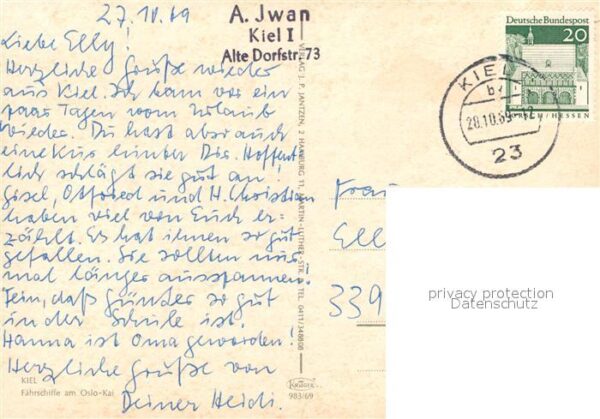 27.10.69
Liebe Elly!
Herzliche Grüße wieder
aus Kiel. Ich kam vor ein
paar Tagen vom Urlaub
wieder. Du hast aber auch
eine Kur hinter Dir. Hoffent
lich schlägt sie gut an!
Gisel, Ostfried und H. Christian
haben viel von Euch er=
zählt. Es hat ihnen so gut
gefallen. Sie sollten nur
mal länger ausspannen.
Fein, daß Günter so gut
in der Schule ist.
Hanna ist Oma geworden!
Herzliche Grüße von
Deiner Heidi.
KIEL
Fährschiffe am Oslo-Kai
A. Jwan
Kiel I
Alte Dorfstr. 73
VERLAG J. P. JANTZEN, 2 HAMBURG 11, MARTIN-LUTHER-STR. TEL. 0411/348608
KRÜGER
983/69
Deutsche Bundespost
20
HESSEN
KIEL
28.10.69
23
Frau
Ell
339
privacy protection
Datenschutz